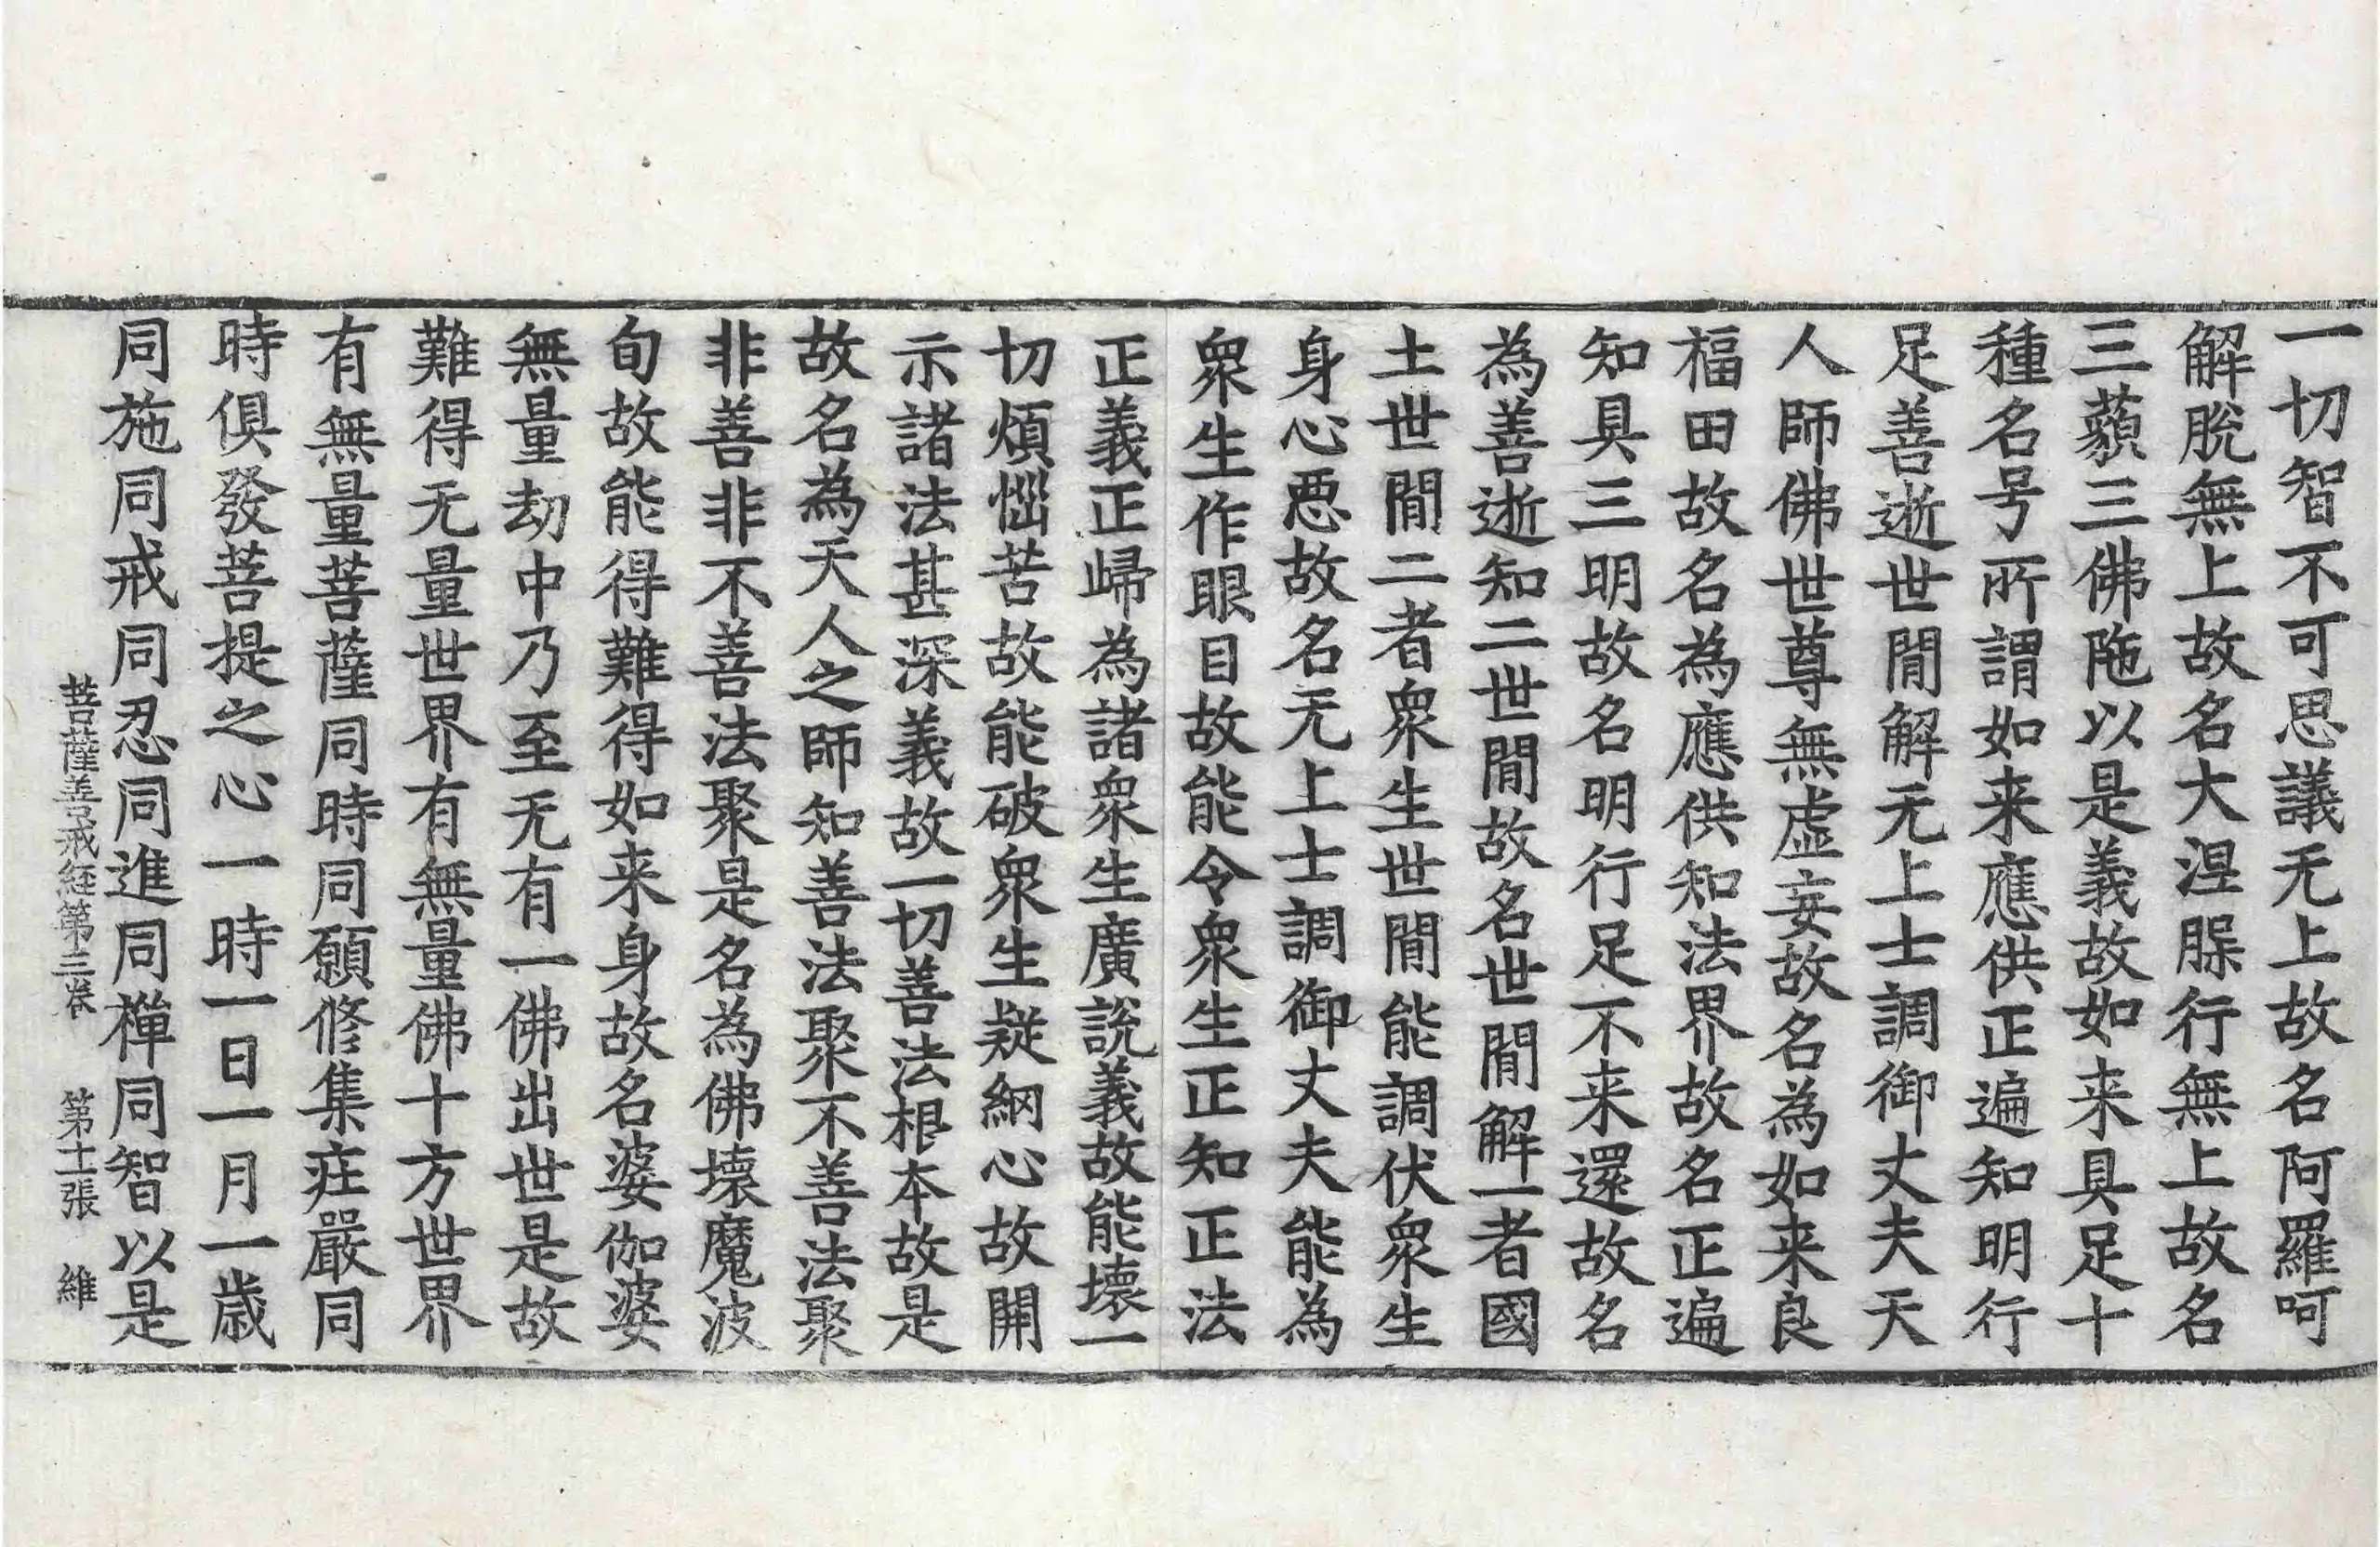 一切智不可思議无上故名阿羅呵
解脫無上故名大涅腂行無上故名
三藐三佛陁以是義故如来具足十
種名号所謂如来應供正遍知明行
足善逝世閒解无上士調御丈夫天
人師佛世尊無虛妄故名為如来良
福田故名為應供知法界故名正遍
知具三明故名明行足不来還故名
為善逝知二世閒故名世閒解一者國
土世閒二者衆生世閒能調伏衆生
身心惡故名无上士調御丈夫能為
衆生作眼目故能令衆生正知正法
正義正歸為諸衆生廣說義故能壞一
切煩惱苦故能破衆生疑網心故開
示諸法甚深義故一切善法根本故是
故名為天人之師知善法聚不善法聚
非善非不善法聚是名為佛壞魔波
旬故能得難得如来身故名婆伽婆
無量劫中乃至无有一佛出世是故
難得无量世界有無量佛十方世界
有無量菩薩同時同願修集疘嚴同
時俱發菩提之心一時一日一月一歳
同施同戒同忍同進同禪同智以是
菩薩善戒經第三卷 第十一張 維